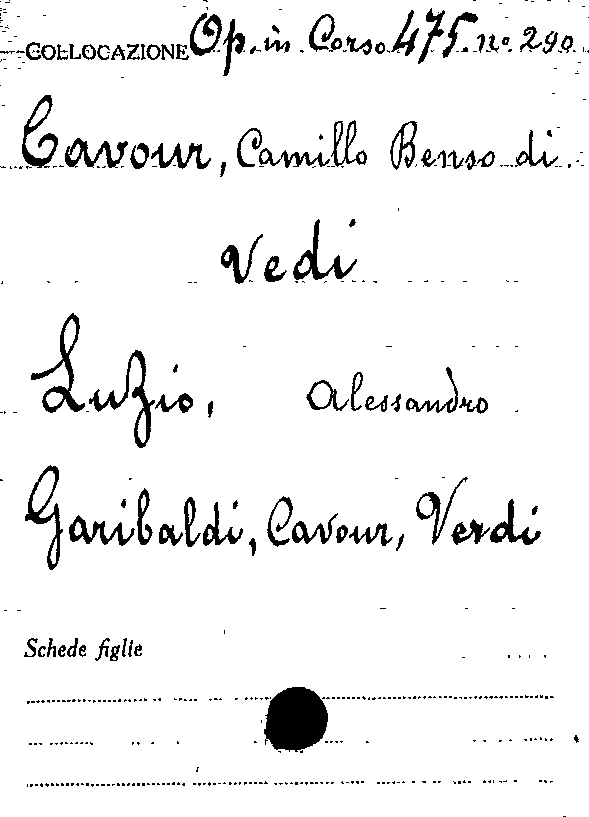 COLLOCAZIONE Op. in Corso 475. nº 290
Cavour, Camillo Benso di.
Vedi
Luzio, Alessandro
Garibaldi, Cavour, Verdi
Schede figlie